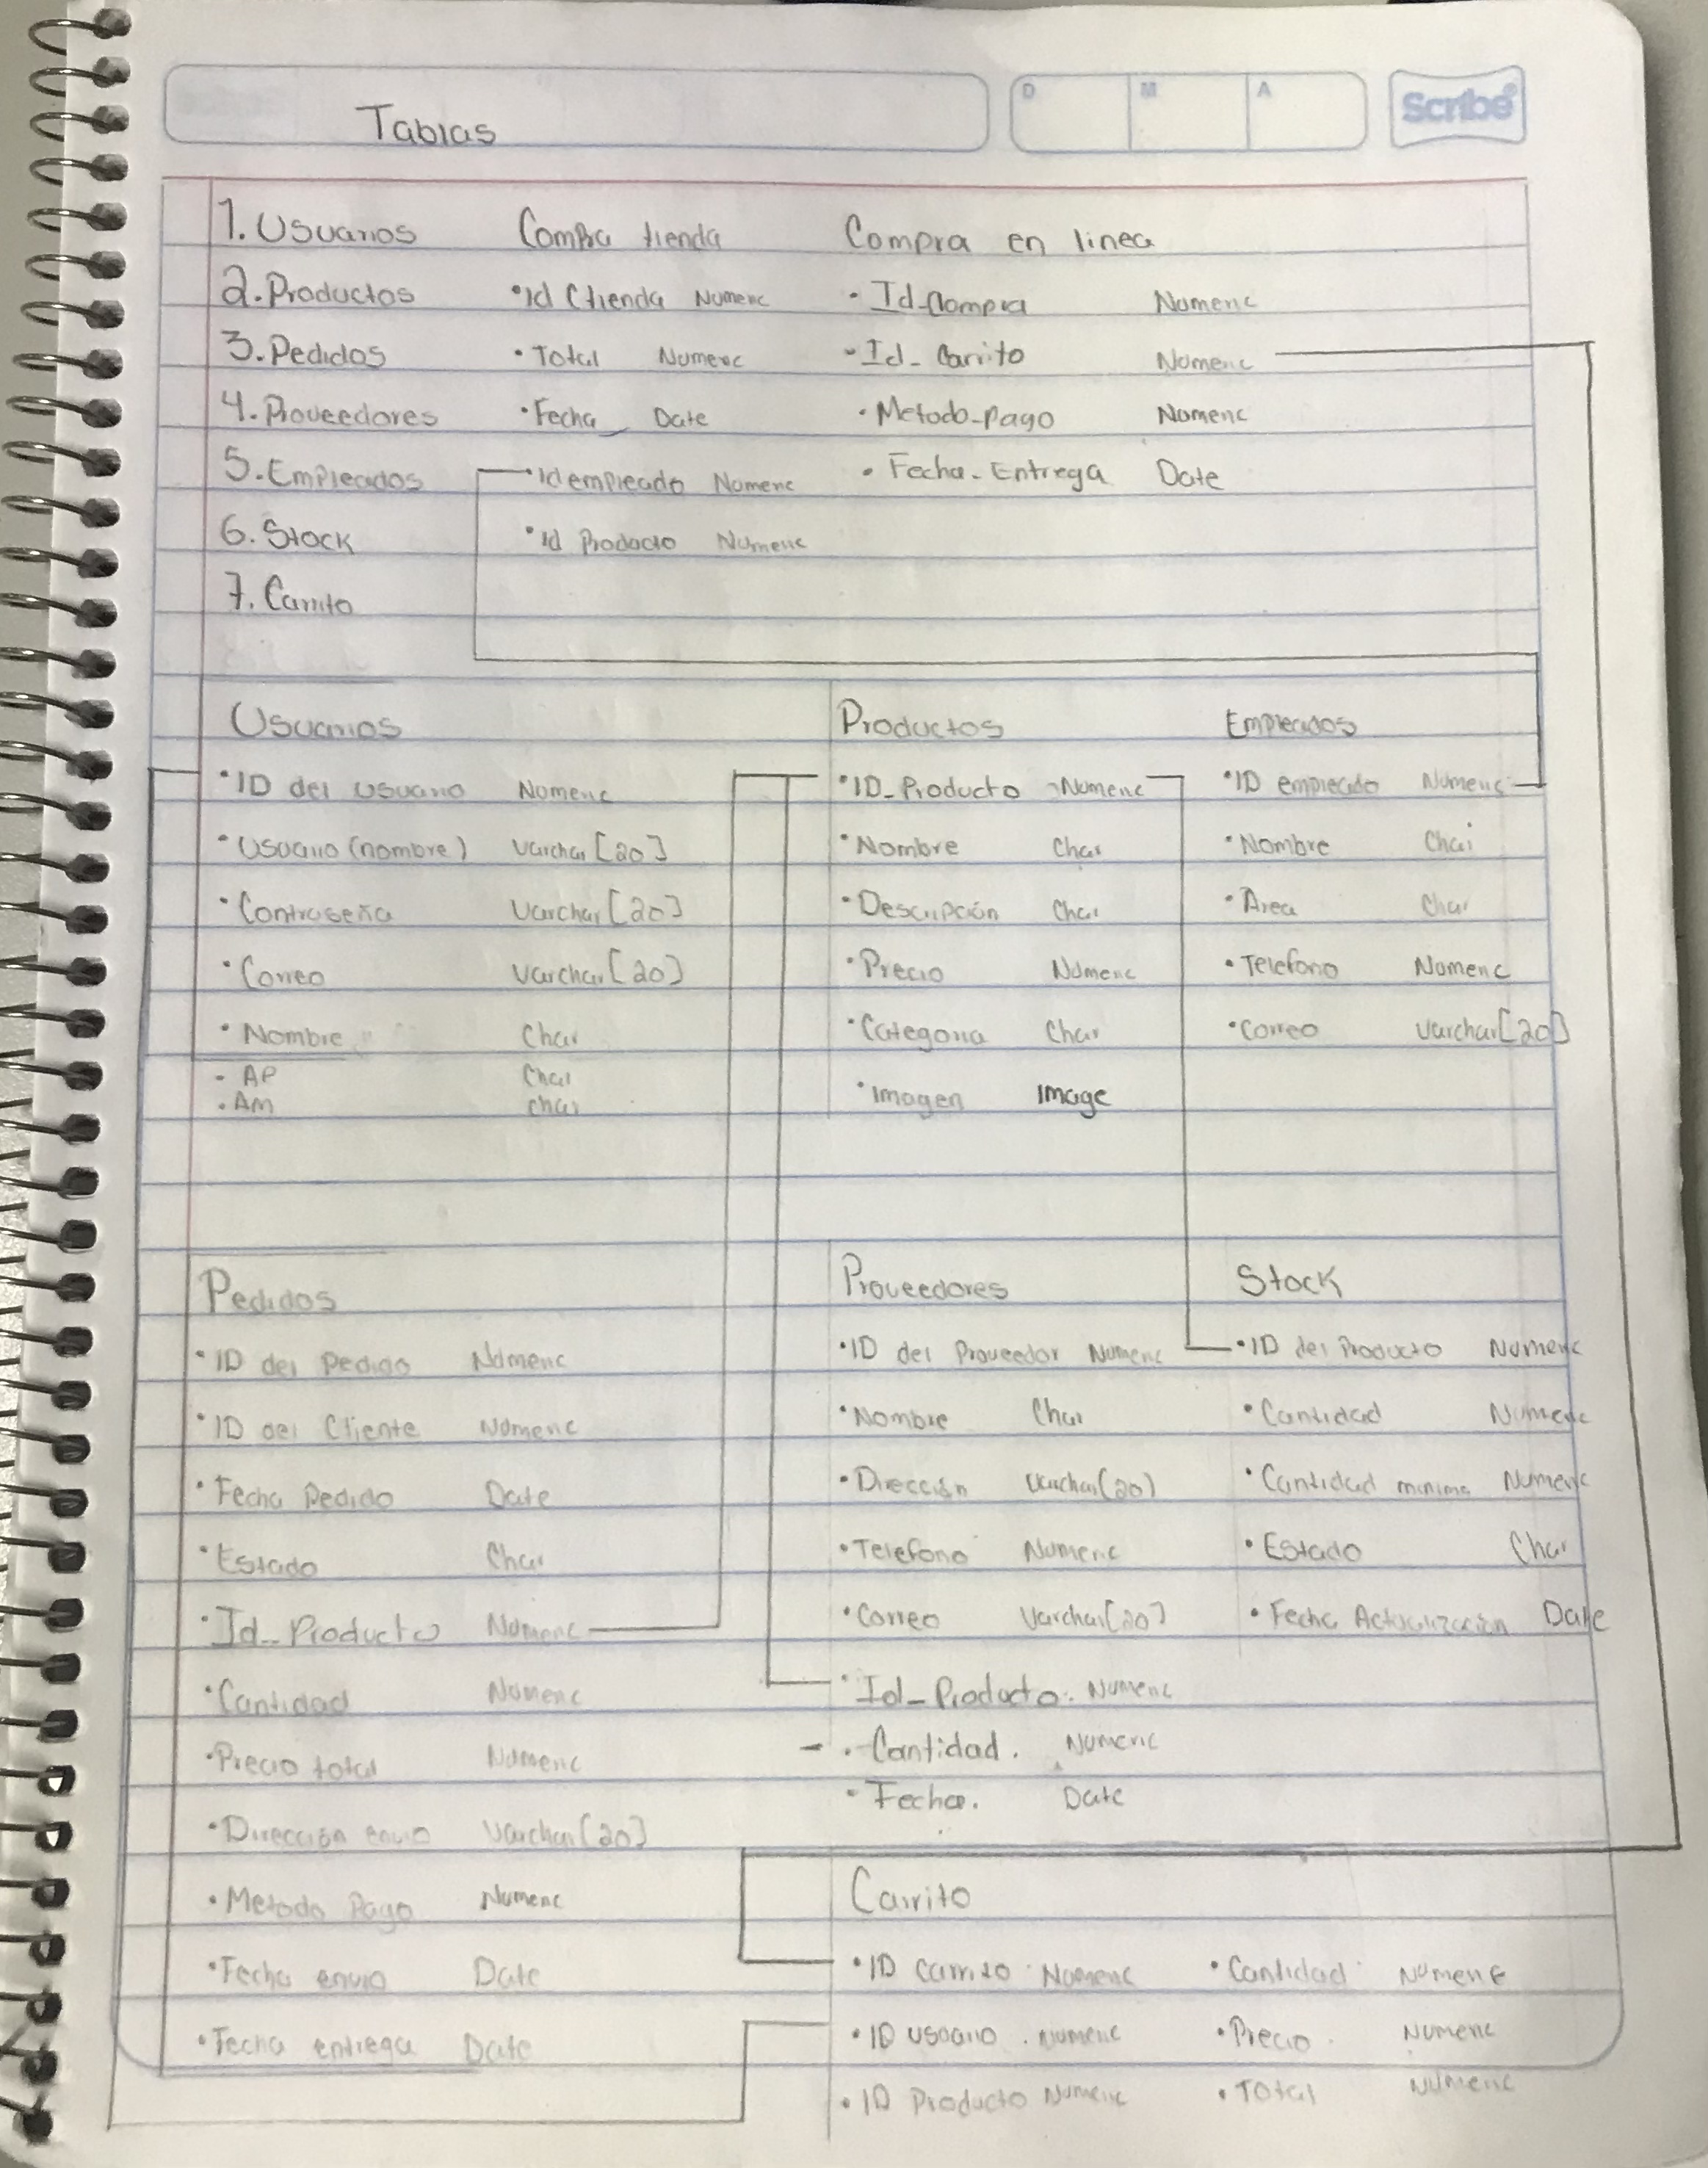 Tablas
D M A
Scribe
1. Usuarios
2. Productos
3. Pedidos
4. Proveedores
5. Empleados
6. Stock
7. Carrito
Compra tienda
• Id Ctienda Numeric
• Total Numeric
• Fecha Date
• Id empleado Numeric
• Id Producto Numeric
Compra en linea
• Id_Compra Numeric
• Id_Carrito Numeric
• Metodo_pago Numeric
• Fecha_Entrega Date
Usuarios
• ID del usuario Numeric
• Usuario (nombre) Varchar [20]
• Contraseña Varchar [20]
• Correo Varchar [20]
• Nombre Char
• AP Char
• AM char
Productos
• ID_Producto Numeric
• Nombre Char
• Descripción Char
• Precio Numeric
• Categoria Char
• Imagen Image
Empleados
• ID empleado Numeric
• Nombre Char
• Area Char
• Telefono Numeric
• Correo Varchar[20]
Pedidos
• ID del Pedido Numeric
• ID del Cliente Numeric
• Fecha Pedido Date
• Estado Char
• Id_Producto Numeric
• Cantidad Numeric
• Precio total Numeric
• Dirección envio Varchar[20]
• Metodo Pago Numeric
• Fecha envio Date
• Fecha entrega Date
Proveedores
• ID del Proveedor Numeric
• Nombre Char
• Dirección Varchar(20)
• Telefono Numeric
• Correo Varchar[20]
• Id_Producto. Numeric
- • Cantidad. Numeric
• Fecha. Date
Stock
• ID del Producto Numeric
• Cantidad Numeric
• Cantidad minima Numeric
• Estado Char
• Fecha Actualización Date
Carrito
• ID carrito Numeric
• ID usuario . Numeric
• ID Producto Numeric
• Cantidad Numeric
• Precio . Numeric
• Total Numeric